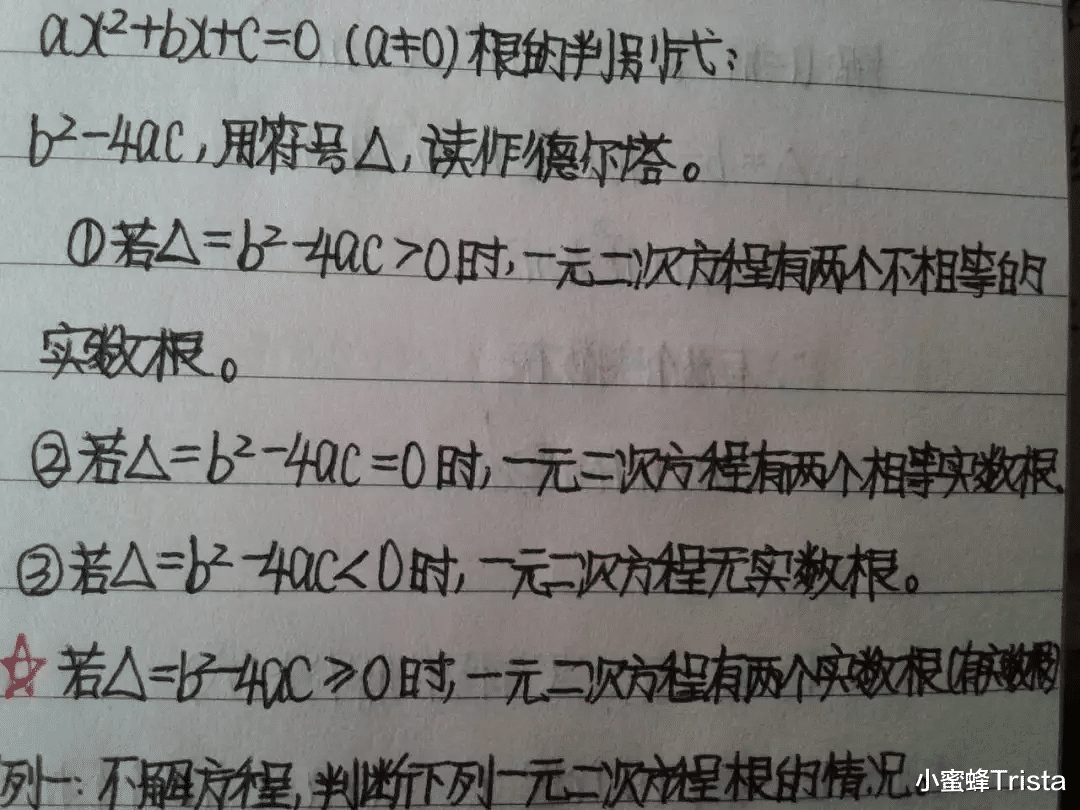 ax²+bx+c=0 (a≠0) 根的判别式：
b²-4ac，用符号△，读作德尔塔。
①若△=b²-4ac>0时，一元二次方程有两个不相等的
实数根。
②若△=b²-4ac=0时，一元二次方程有两个相等实数根.
③若△=b²-4ac<0时，一元二次方程无实数根。
☆若△=b²-4ac≥0时，一元二次方程有两个实数根(有实数根)
列一：不解方程，判断下列一元二次方程根的情况
小蜜蜂Trista